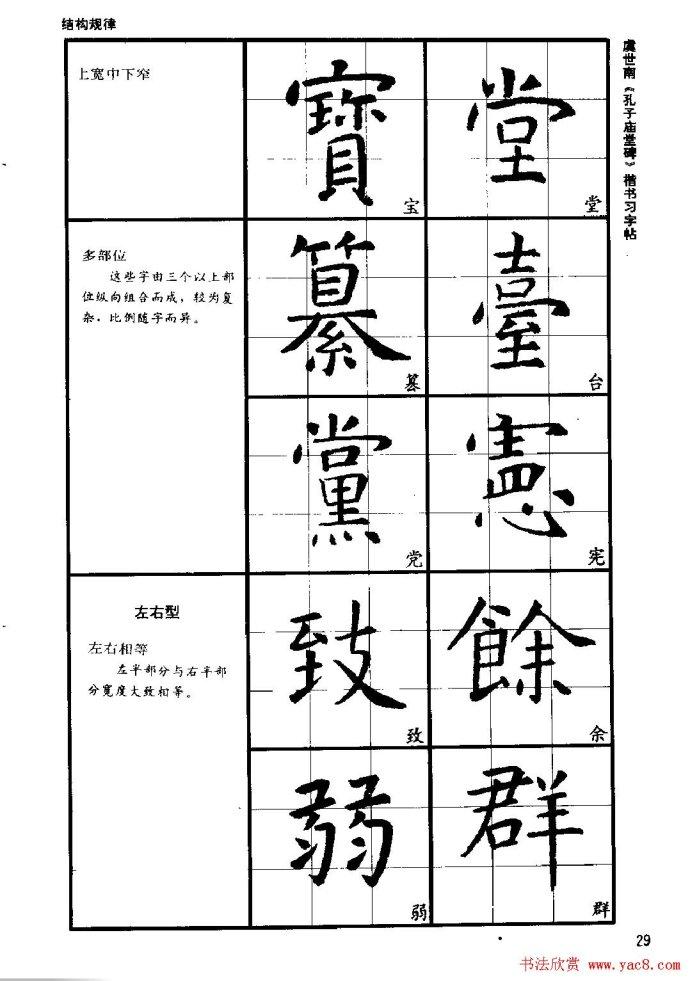 结构规律
虞世南《孔子庙堂碑》楷书习字帖
上宽中下窄
寶
宝
堂
堂
多部位
这些字由三个以上部
位纵向组合而成，较为复
杂，比例随字而异。
纂
纂
臺
台
黨
党
憲
宪
左右型
左右相等
左半部分与右半部
分宽度大致相等。
致
致
餘
余
弱
弱
群
群
29
书法欣赏 www.yac8.com